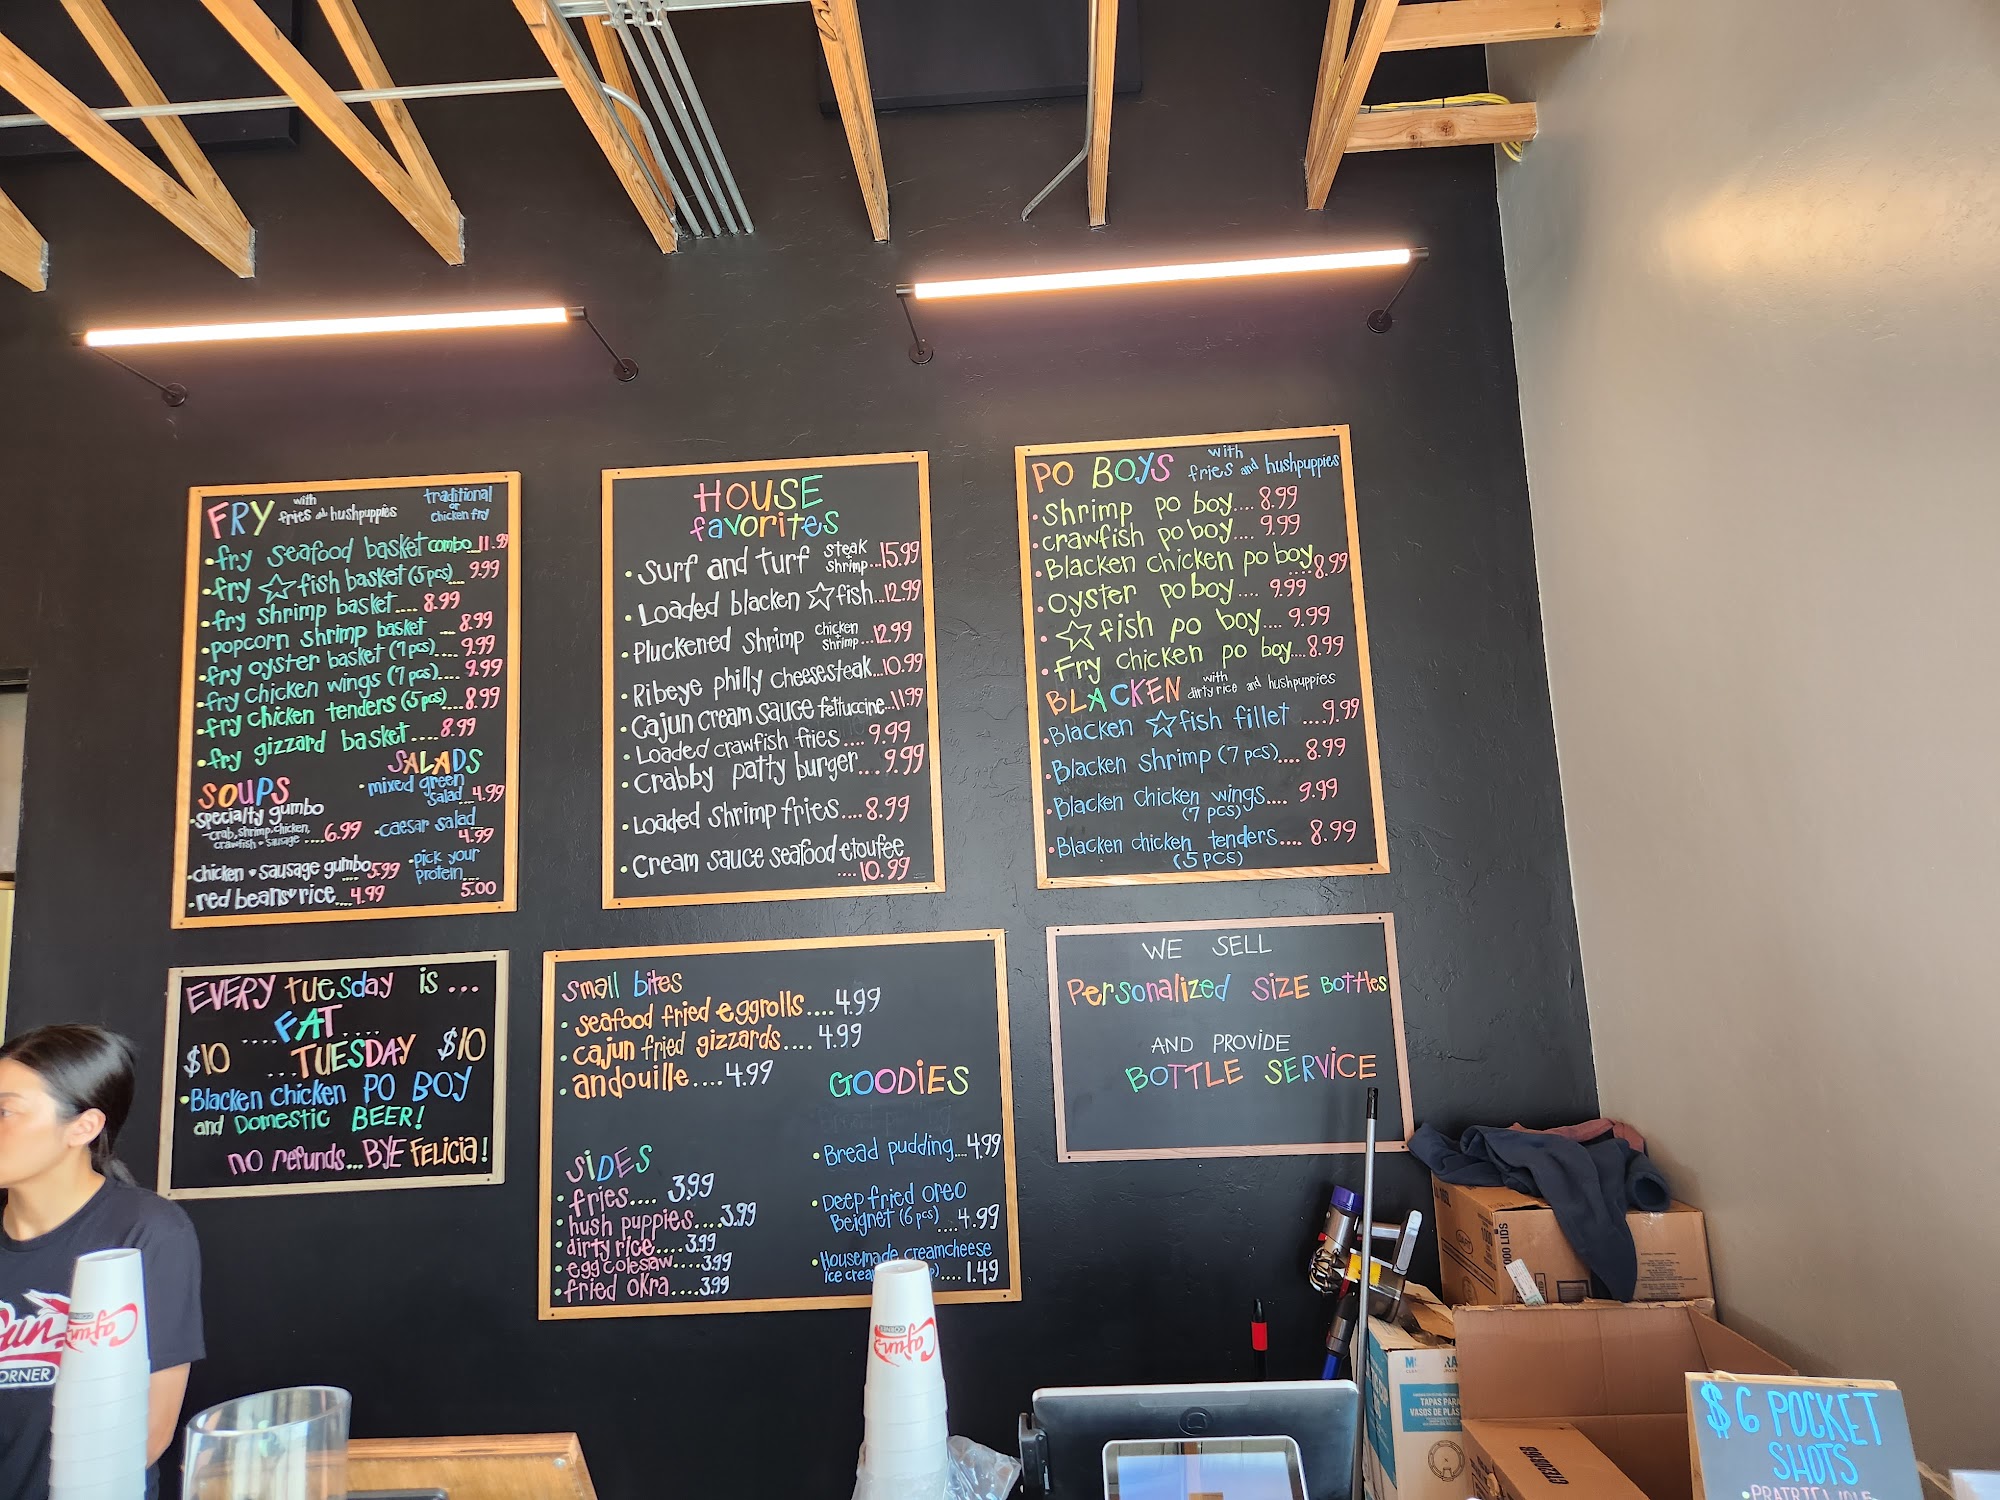 FRY with fries and hushpuppies
traditional or chicken fry
• fry seafood basket combo...11.99
• fry ☆ fish basket (5pcs)... 9.99
• fry shrimp basket.... 8.99
• popcorn shrimp basket .... 8.99
• fry oyster basket (7pcs).... 9.99
• fry chicken wings (7pcs).... 9.99
• fry chicken tenders (5pcs)....8.99
• fry gizzard basket....8.99
SOUPS
• specialty gumbo
crab, shrimp, chicken, crawfish + sausage ....6.99
• chicken + sausage gumbo....5.99
• red beans + rice....4.99
SALADS
• mixed green salad...4.99
• caesar salad 4.99
• pick your protein... 5.00
HOUSE
favorites
• Surf and turf steak shrimp...15.99
• Loaded blacken ☆fish...12.99
• Pluckened shrimp chicken shrimp...12.99
• Ribeye philly cheesesteak...10.99
• Cajun cream sauce fettuccine...11.99
• Loaded crawfish fries.... 9.99
• Crabby patty burger... 9.99
• Loaded shrimp fries....8.99
• Cream sauce seafood etoufee
....10.99
PO BOYS with fries and hushpuppies
• Shrimp po boy.... 8.99
• crawfish po boy.... 9.99
• Blacken chicken po boy
....8.99
• oyster po boy.... 9.99
• ☆ fish po boy.... 9.99
• Fry chicken po boy....8.99
BLACKEN with dirty rice and hushpuppies
• Blacken ☆ fish fillet ....9.99
• Blacken shrimp (7 pcs).... 8.99
• Blacken chicken wings.... 9.99
(7 pcs)
• Blacken chicken tenders.... 8.99
(5 PCS)
EVERY tuesday is ...
....FAT....
$10 ...TUESDAY $10
• Blacken chicken PO BOY
and Domestic BEER!
no refunds...BYE FELICIA!
small bites
• seafood fried eggrolls....4.99
• cajun fried gizzards.... 4.99
• andouille....4.99
SIDES
• fries.... 3.99
• hush puppies....3.99
• dirty rice....3.99
• egg coleslaw....3.99
• fried okra....3.99
GOODIES
• Bread pudding....4.99
• Deep fried oreo
Beignet (6 pcs) ....4.99
• Housemade creamcheese
ice .... 1.49
WE SELL
Personalized SIZE Bottles
AND PROVIDE
BOTTLE SERVICE
$6 POCKET
SHOTS
Cajun
CORNER
Cajun
CORNER
ORNER
TAPAS PARA
VASOS DE
000 LIDS